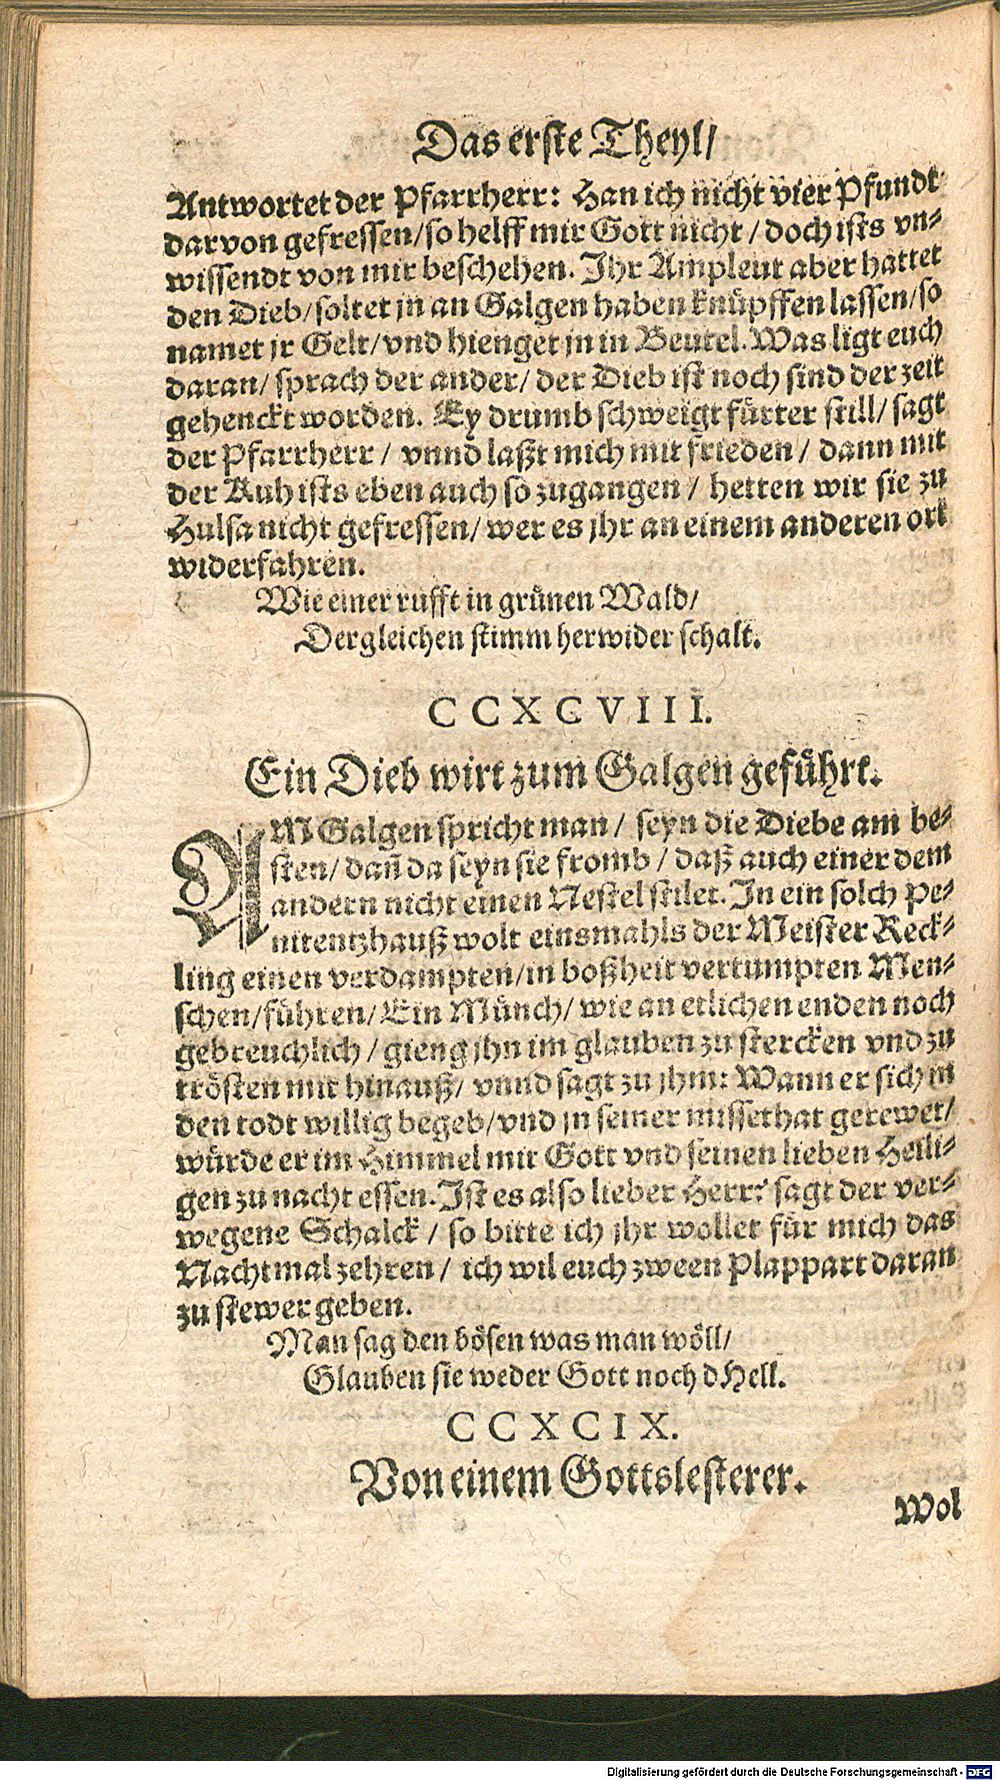 Das erste Theyl/
Antwortet der Pfarrherr: Han ich nicht vier Pfundt
darvon gefressen/so helff mir Gott nicht / doch ists vn-
wissendt von mir beschehen. Ihr Ampleut aber hattet
den Dieb/soltet jn an Galgen haben knüpffen lassen/so
namet jr Gelt/vnd hienget jn in Beutel. Was ligt euch
daran/ sprach der ander/ der Dieb ist noch sind der zeit
gehenckt worden. Ey drumb schweigt fürter still/ sagt
der Pfarrherr / vnnd laßt mich mit frieden / dann mit
der Kuh ists eben auch so zugangen / hetten wir sie zu
Hulsa nicht gefressen/ wer es jhr an einem anderen ort
widerfahren.
Wie einer rufft in grünen Wald/
Dergleichen stimm herwider schalt.
CCXCVIII.
Ein Dieb wirt zum Galgen geführt.
AM Galgen spricht man / seyn die Diebe am be-
sten/ dañ da seyn sie fromb / daß auch einer dem
andern nicht einen Nestel stilet. In ein solch pe-
nitentzhauß wolt einsmahls der Meister Reck-
ling einen verdampten/in boßheit vertumpten Men-
schen/führen/ Ein Münch/ wie an etlichen enden noch
gebreuchlich / gieng jhn im glauben zu stercken vnd zu
trösten mit hinauß/ vnnd sagt zu jhm: Wann er sich in
den todt willig begeb/vnd jn seiner missethat gerewet/
würde er im Himmel mit Gott vnd seinen lieben Heili-
gen zu nacht essen. Ist es also lieber Herr? sagt der ver-
wegene Schalck / so bitte ich jhr wollet für mich das
Nachtmal zehren / ich wil euch zween Plappart daran
zu stewer geben.
Man sag den bösen was man wöll/
Glauben sie weder Gott noch d Hell.
CCXCIX.
Von einem Gottslesterer.
Wol
Digitalisierung gefördert durch die Deutsche Forschungsgemeinschaft - DFG